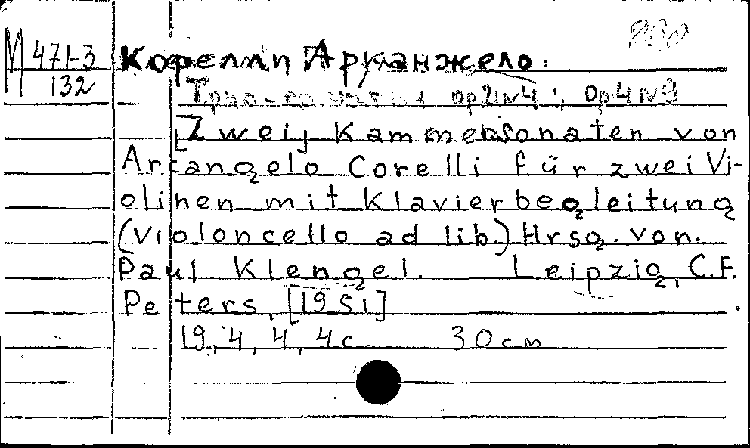 М 471-3
132
Корелли Арканджело.
Трио-сонаты ор2№4; ор4№9
[Zwei] Kammersonaten von
Arcangelo Corelli für zwei Vi-
olinen mit Klavierbegleitung
(Violoncello ad lib.) Hrsg. von.
Paul Klengel. Leipzig, C.F.
Peters, [1951]
19, 4, 4, 4c 30cm